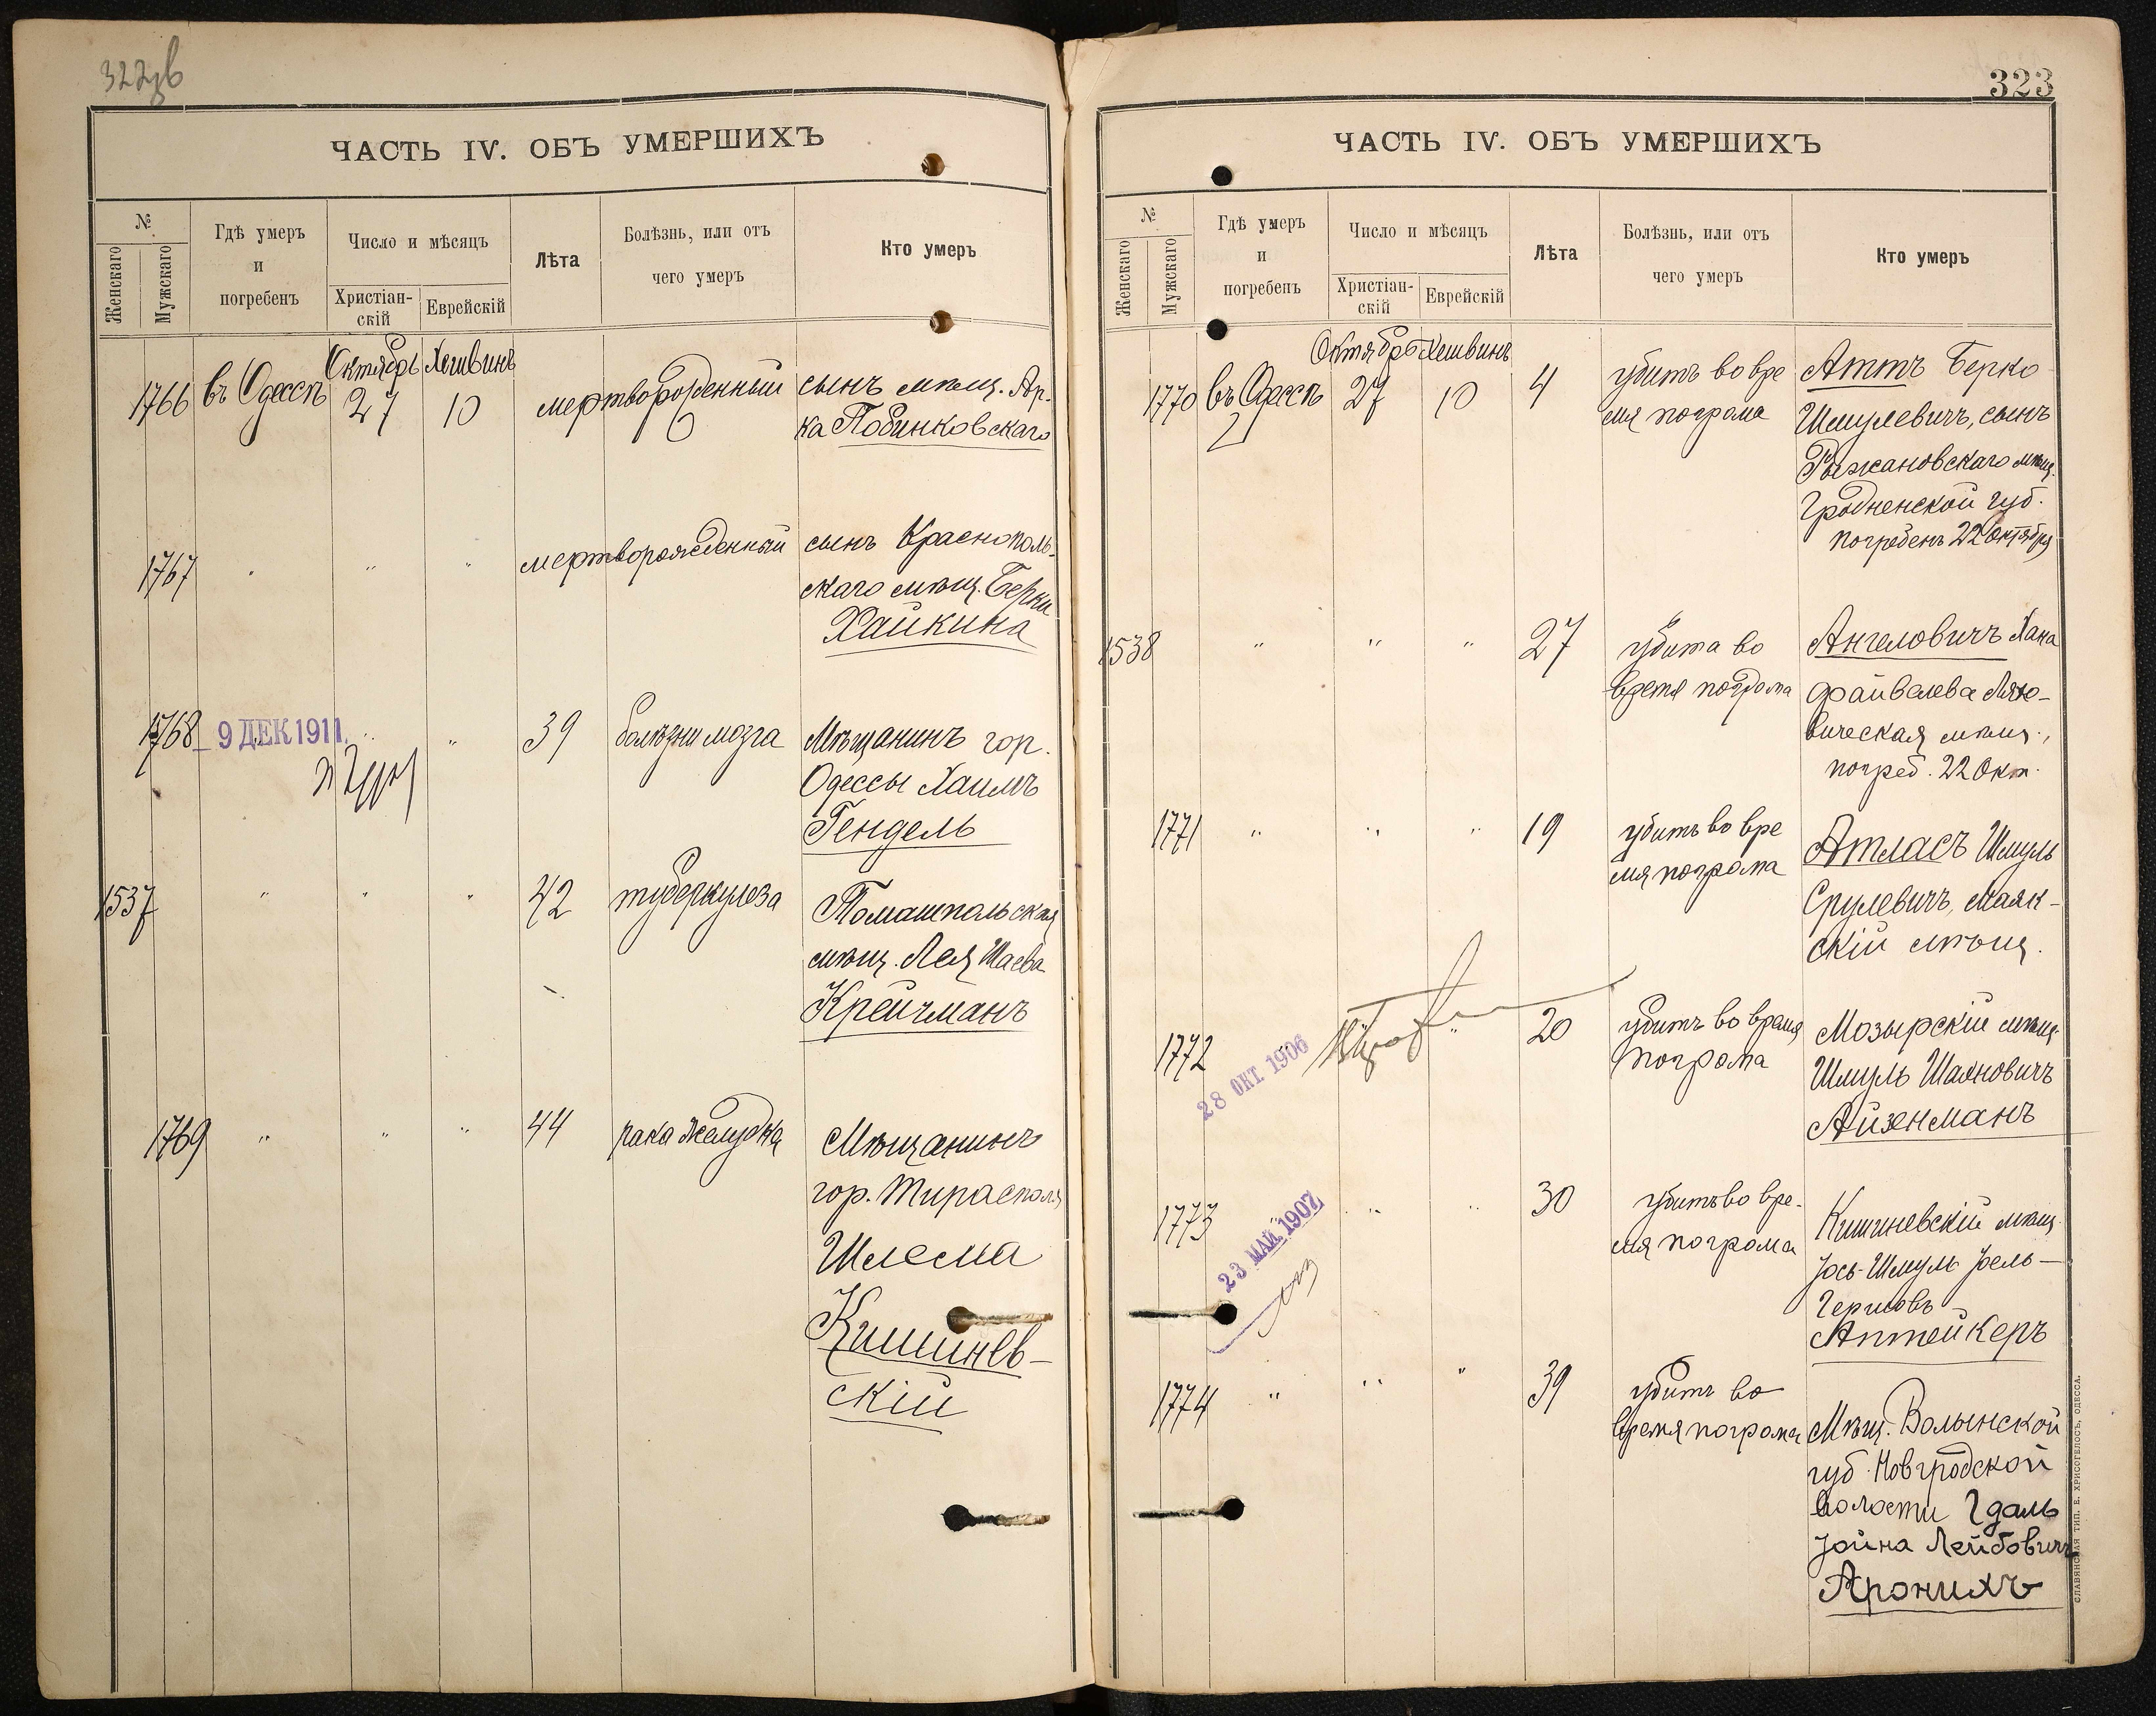 322
323
ЧАСТЬ IV. ОБЪ УМЕРШИХЪ
№
Женскаго
Мужскаго
Гдѣ умеръ
и
погребенъ
Число и мѣсяцъ
Христіан-
скій
Еврейскій
Лѣта
Болѣзнь, или отъ
чего умеръ
Кто умеръ
Октябрь Хешвинъ
1766 въ Одессѣ 27 10 мертворожденный сынъ мѣщ. Ар-
ка Побинковскаго
1767 " " " мертворожденный сынъ Краснополь-
скаго мѣщ. Берки
Хайкина
1768 " " " 39 болѣзни мозга Мѣщанинъ гор.
9 ДЕК 1911
Одессы Хаимъ
Гендель
1537 " " " 42 туберкулеза Томашпольская
мѣщ. Лея Шаева
Крейчманъ
1769 " " " 44 рака желудка Мѣщанинъ
гор. Тирасполя
Шлема
Кишинев-
скій
ЧАСТЬ IV. ОБЪ УМЕРШИХЪ
№
Женскаго
Мужскаго
Гдѣ умеръ
и
погребенъ
Число и мѣсяцъ
Христіан-
скій
Еврейскій
Лѣта
Болѣзнь, или отъ
чего умеръ
Кто умеръ
Октябрь Хешвинъ
1770 въ Одессѣ 27 10 4 убитъ во вре
мя погрома
Аттъ Берко
Шмулевичъ, сынъ
Рыжановскаго мѣщ.
Гродненской губ.
погребенъ 22 Октября
1538 " " " 27 убита во
время погрома
Ангеловичъ Хана
Файвелева
вическая мѣщ.,
погреб. 22 Окт.
1771 " " " 19 убитъ во вре
мя погрома
Атласъ Шмуль
Срулевичъ, Маяк-
скій мѣщ.
1772 " " 20 убитъ во время
погрома
28 ОКТ 1906
Мозырскій мѣщ.
Шмуль Шаяновичъ
Айзенманъ
1773 " " " 30 убитъ во вре-
мя погрома
23 МАЙ 1907
Кишиневскій мѣщ.
Іось-Шмуль Іоель-
Гершовъ
Аптейкеръ
1774 " " " 39 убитъ во
время погрома
Мѣщ. Волынской
губ. Новгродской
волости Гдаль
Іойна Лейбовичъ
Аронихъ
СЛАВЯНСКАЯ ТИП. Е. ХРИСОГЕЛОСЪ, ОДЕССА.